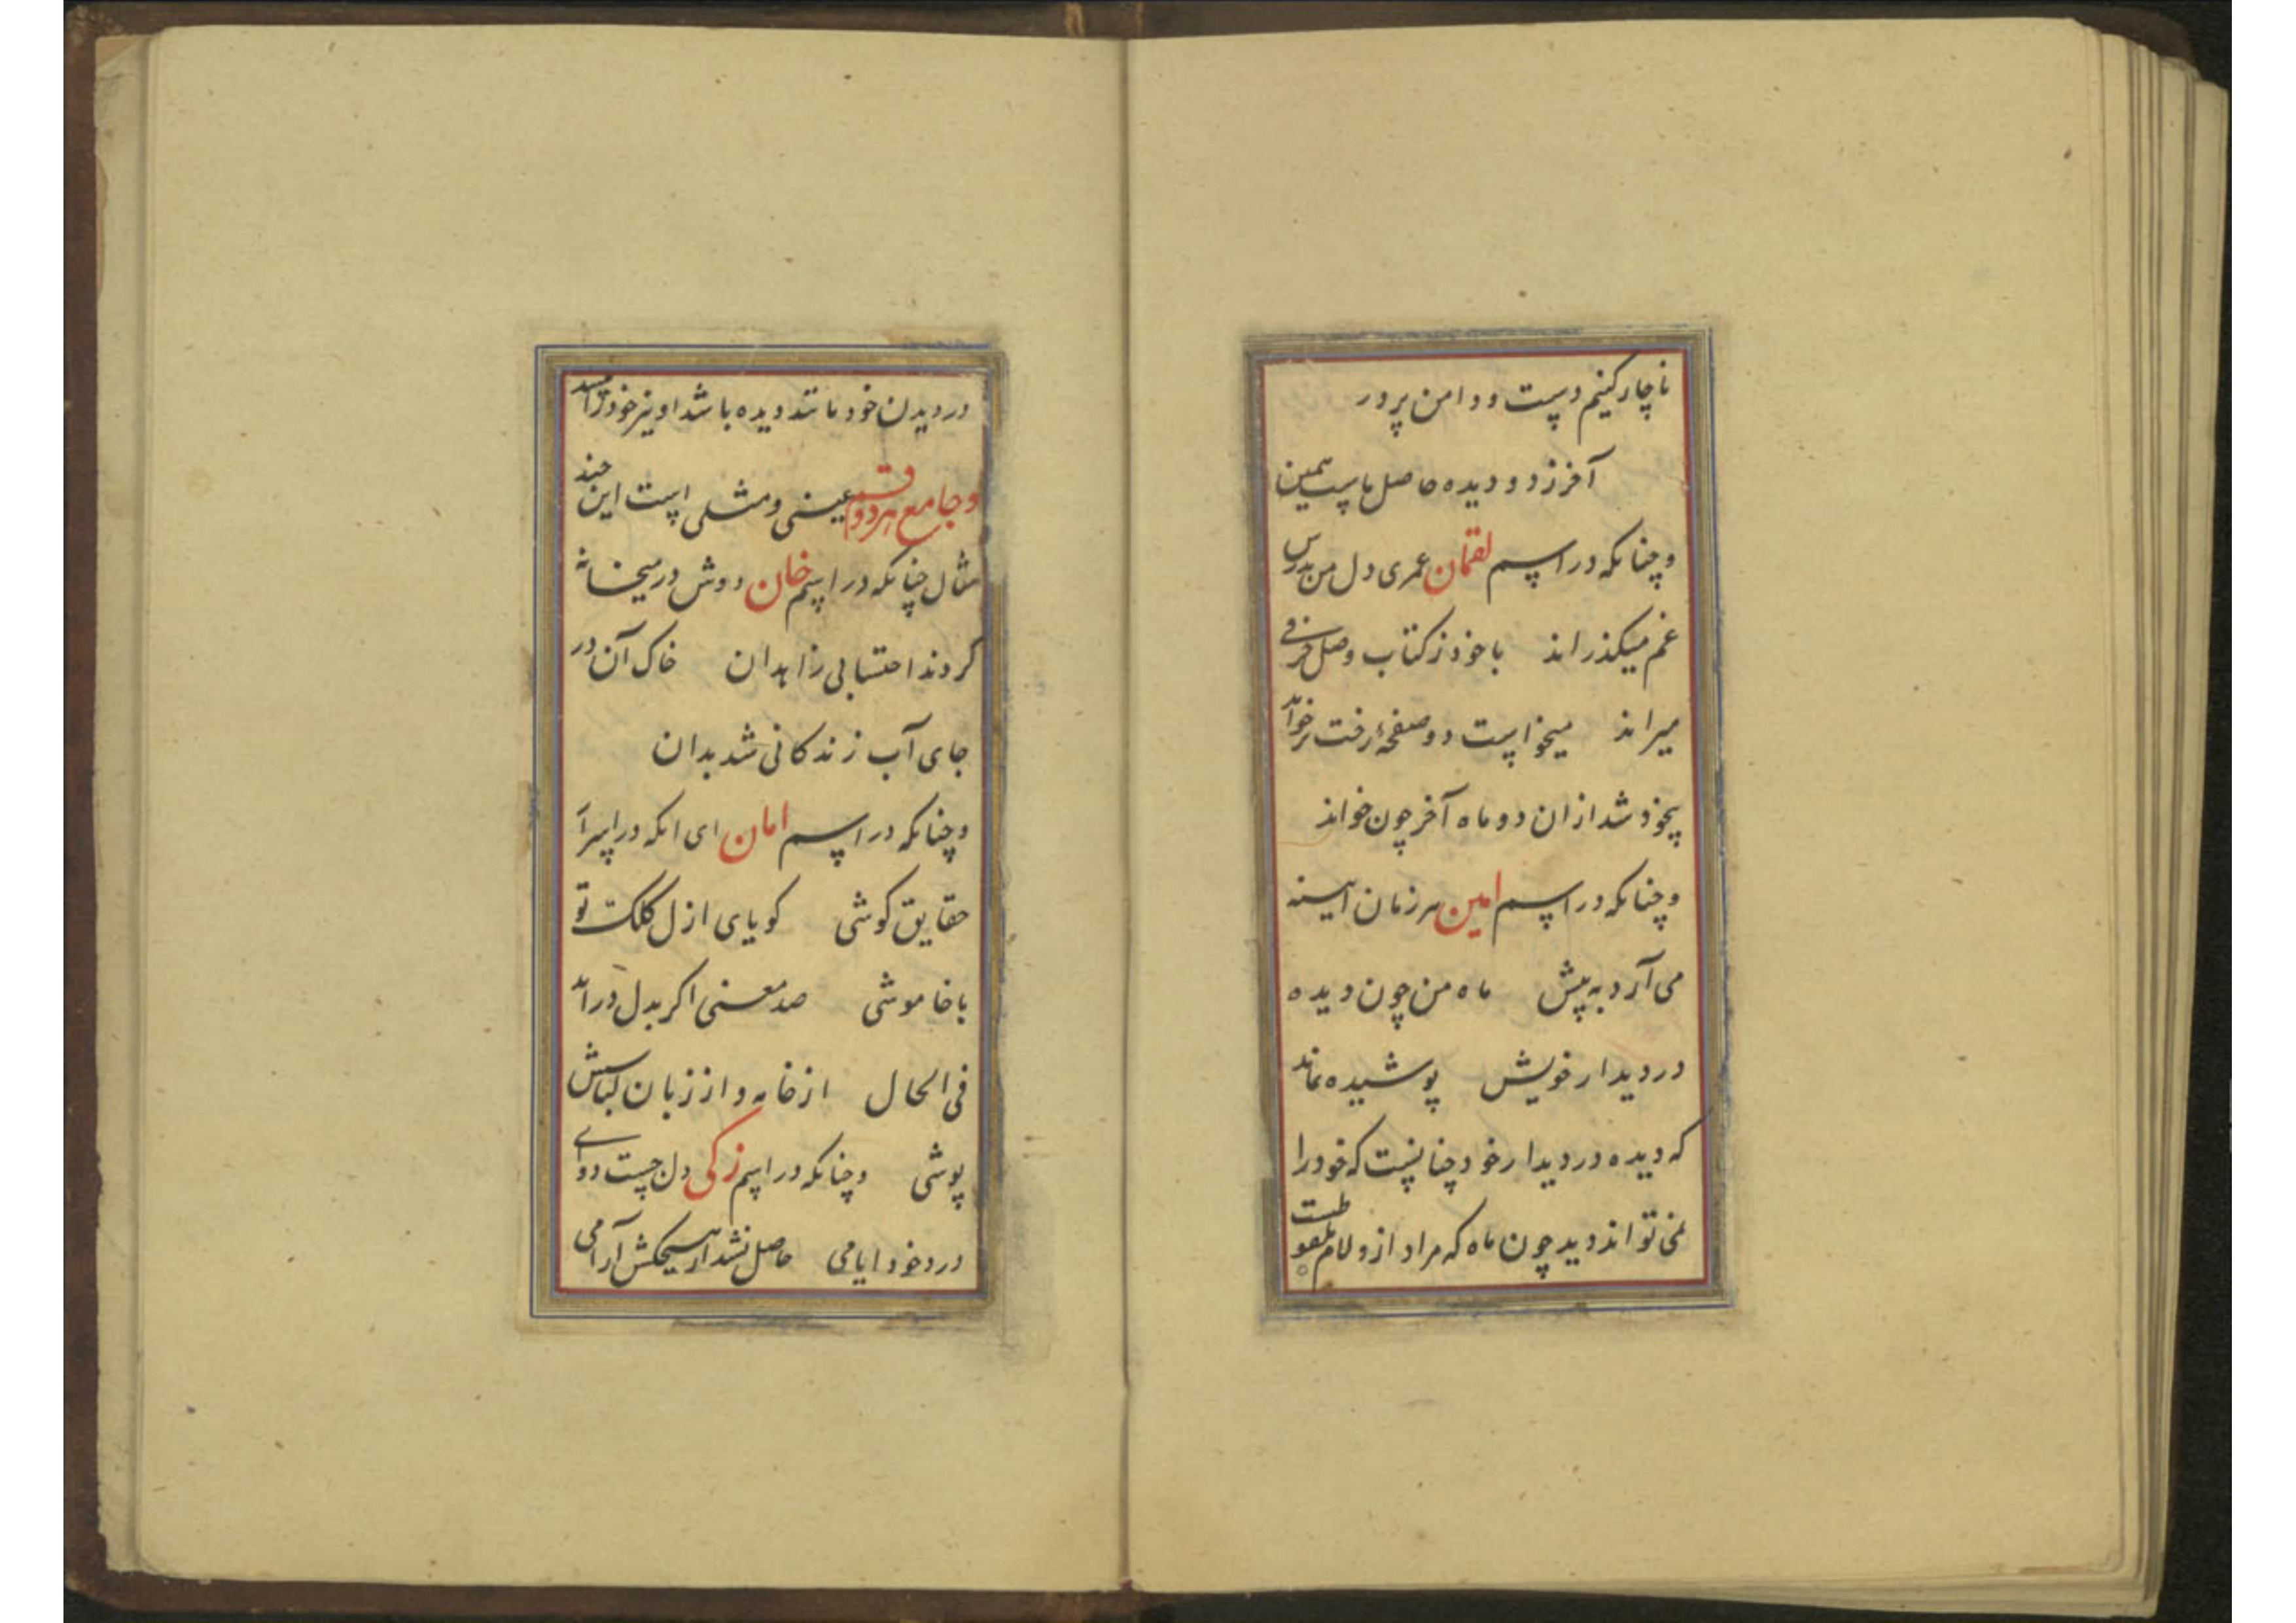 ناچار کنیم دست و دامن پر در
آخر ز دو دیده حاصل ماست همین
و چنانکه در اسم لقمان عمری دل من بدرس
غم میکذراند با خود ز کتاب وصل حرفی
میراند میخواست دو صفحهٔ رخت بر خواند
بیخود شد ازان دو ماه آخر چون خواند
و چنانکه در اسم امین هر زمان آیینه
می آرد به پیش ماه من چون دیده
در دیدار خویش پوشیده نماند
که دیده در دیدار خود چنانست که خود را
نمی تواند دید چون ماه که مراد ازو لام ملفوظست
در دیدن خود مانند دیده باشد او نیز خود را
و جامع هر دو قسم عینی و مثلی است این چند
مثال چنانکه در اسم خان دوش در میخانه
کردند احتسابی زاهدان خاک آن در
جای آب زندکانی شد بدان
و چنانکه در اسم امان ای انکه در اسرار
حقایق کوشی کویای ازل کلک تو
با خاموشی صد معنی اکر بدل در آید
فی الحال از خامه و از زبان لباسش
پوشی و چنانکه در اسم زکی دل جست دوای
درد خود ایامی حاصل نشد از هیچکش آرامی